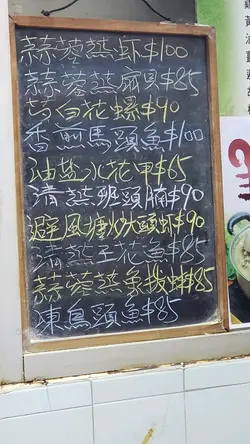 蒜蓉蒸虾$100
蒜蓉蒸扇贝$85
花螺$90
香煎馬頭魚$100
油盐水花甲$65
清蒸班頭腩$90
避風塘炒頭虾$90
清蒸子花魚$85
蒜蓉蒸象拔蚌$85
凍烏頭魚$85